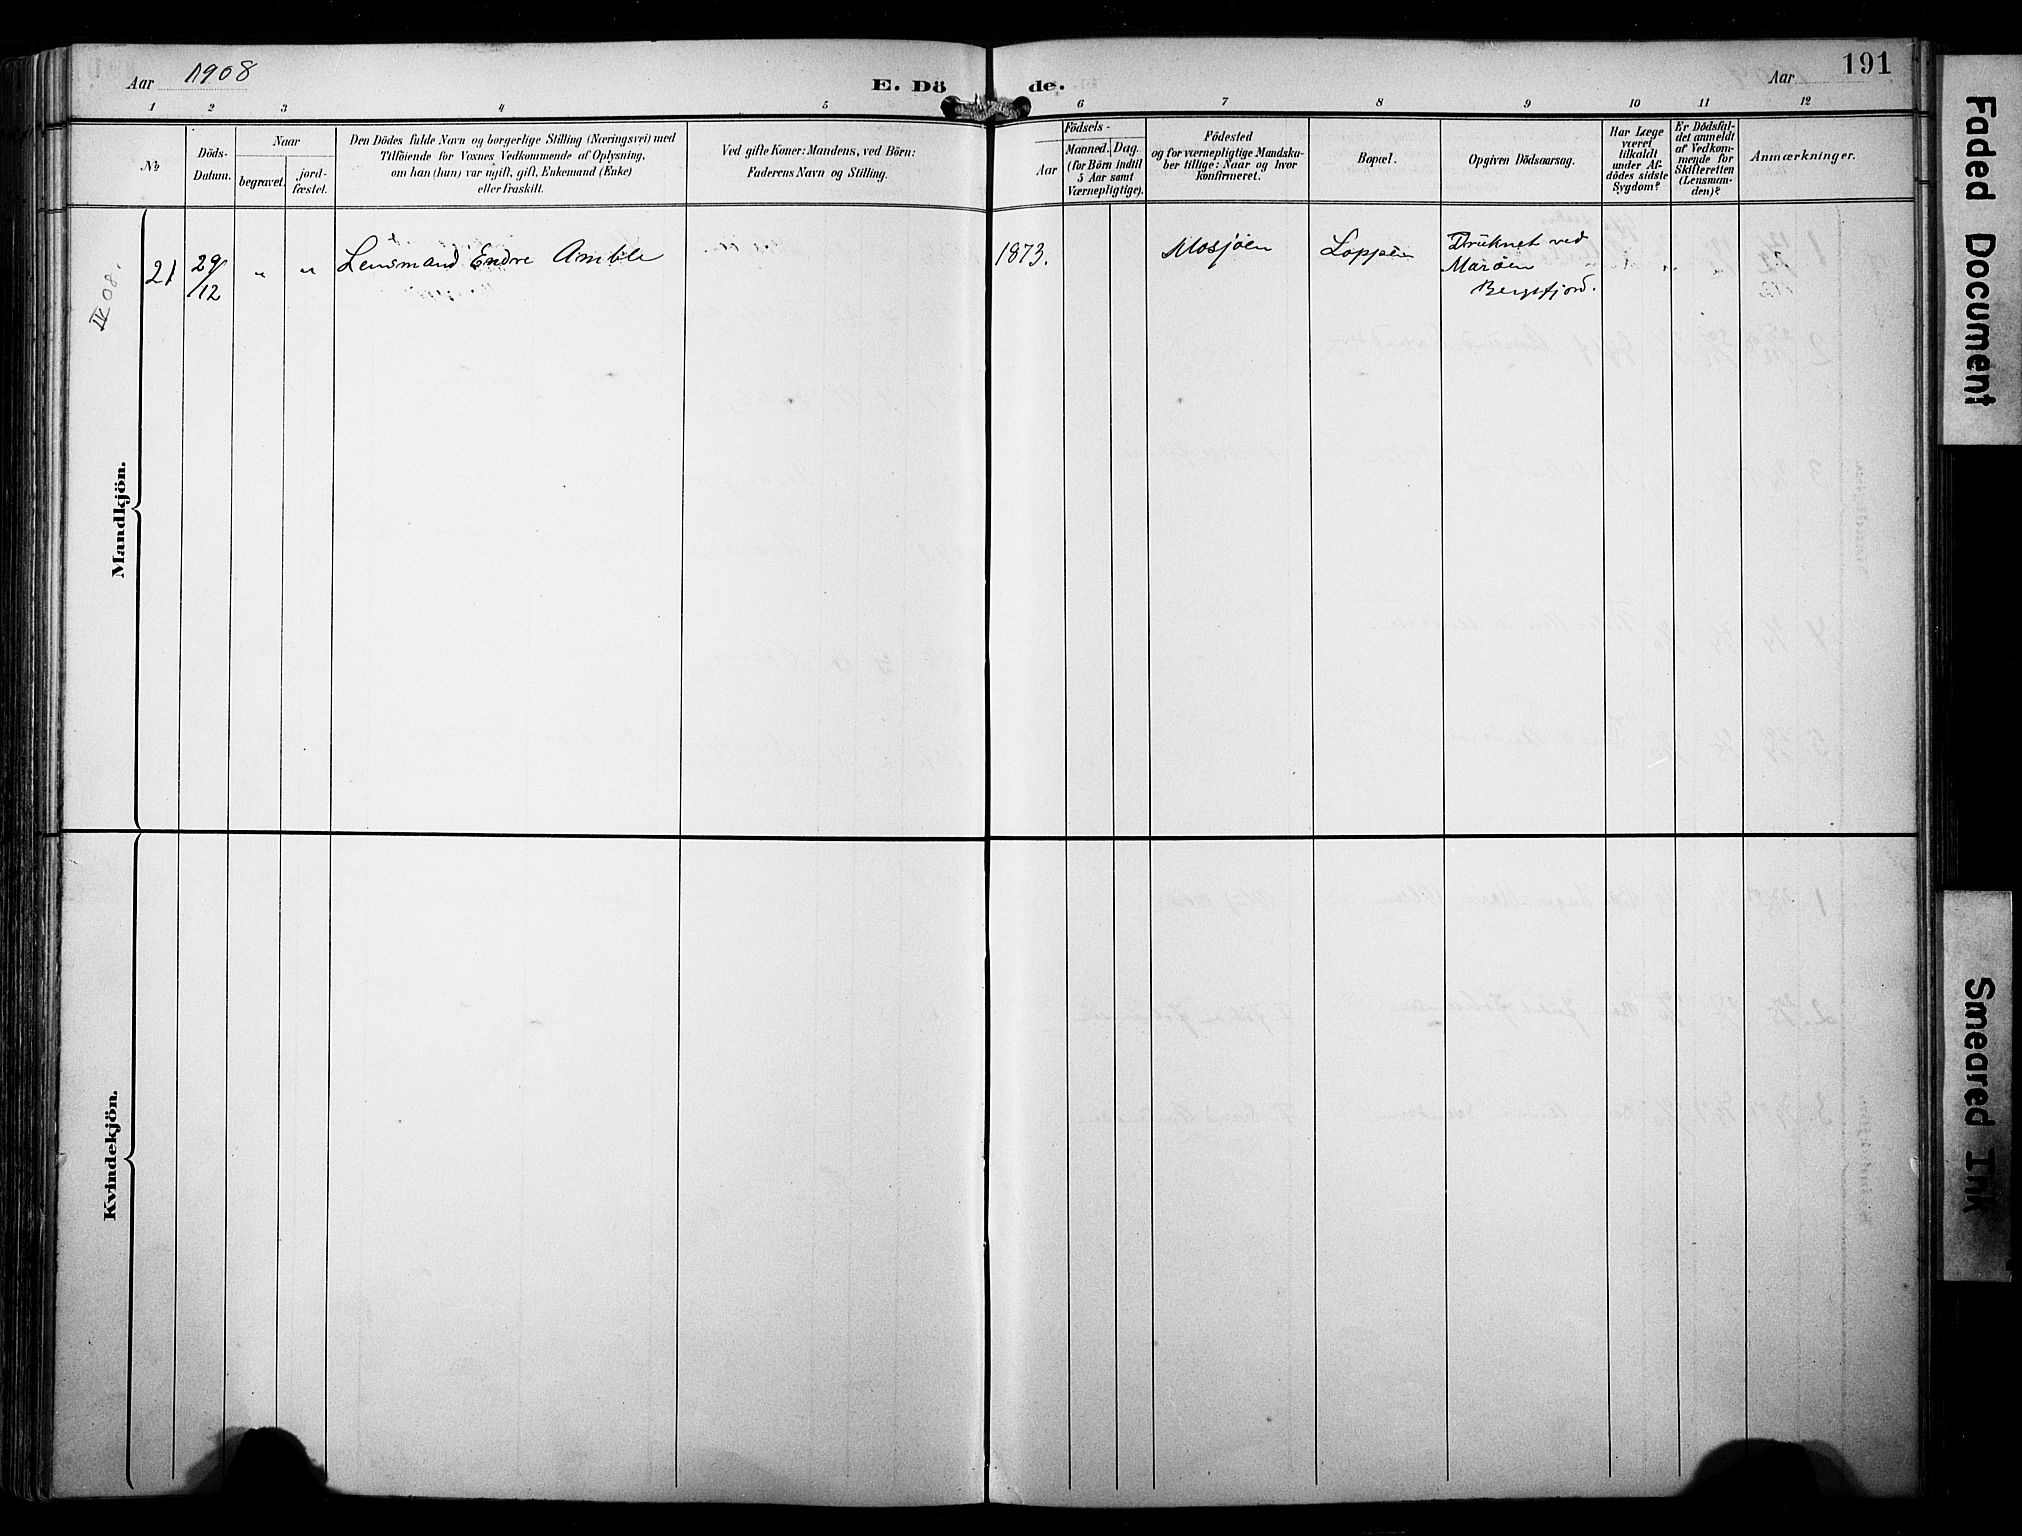 Aar 1908
E. Dö de.
Aar
191
1 2 3 4 5 6 7 8 9 10 11 12
№
Döds-
Datum.
Naar
begravet.
jord-
fæstet.
Den Dödes fulde Navn og borgerlige Stilling (Næringsvei) med
Tilföiende for Voxnes Vedkommende af Oplysning,
om han (hun) var ugift, gift, Enkemand (Enke)
eller fraskilt.
Ved gifte Koner: Mandens, ved Börn:
Faderens Navn og Stilling.
Födsels-
Aar
Maaned. Dag.
(for Börn indtil
5 Aar samt
Værnepligtige).
Födested
og for værnepligtige Mandska-
ber tillige: Naar og hvor
konfirmeret.
Bopæl.
Opgiven Dödsaarsag.
Har Læge
været
tilkaldt
under Af-
dödes sidste
Sygdom?
Er Dödsfal-
det anmeldt
af Vedkom-
mende for
Skifteretten
(Lensman-
den)?
Anmærkninger.
IV 08.
21
29/12
" "
Lensmand Endre Amble
1873.
Mosjöen
Loppen
Druknet ved
Maröen
Bergsfjord.
" "
Mandkjön.
Kvindekjön.
Faded Document
Smeared Ink